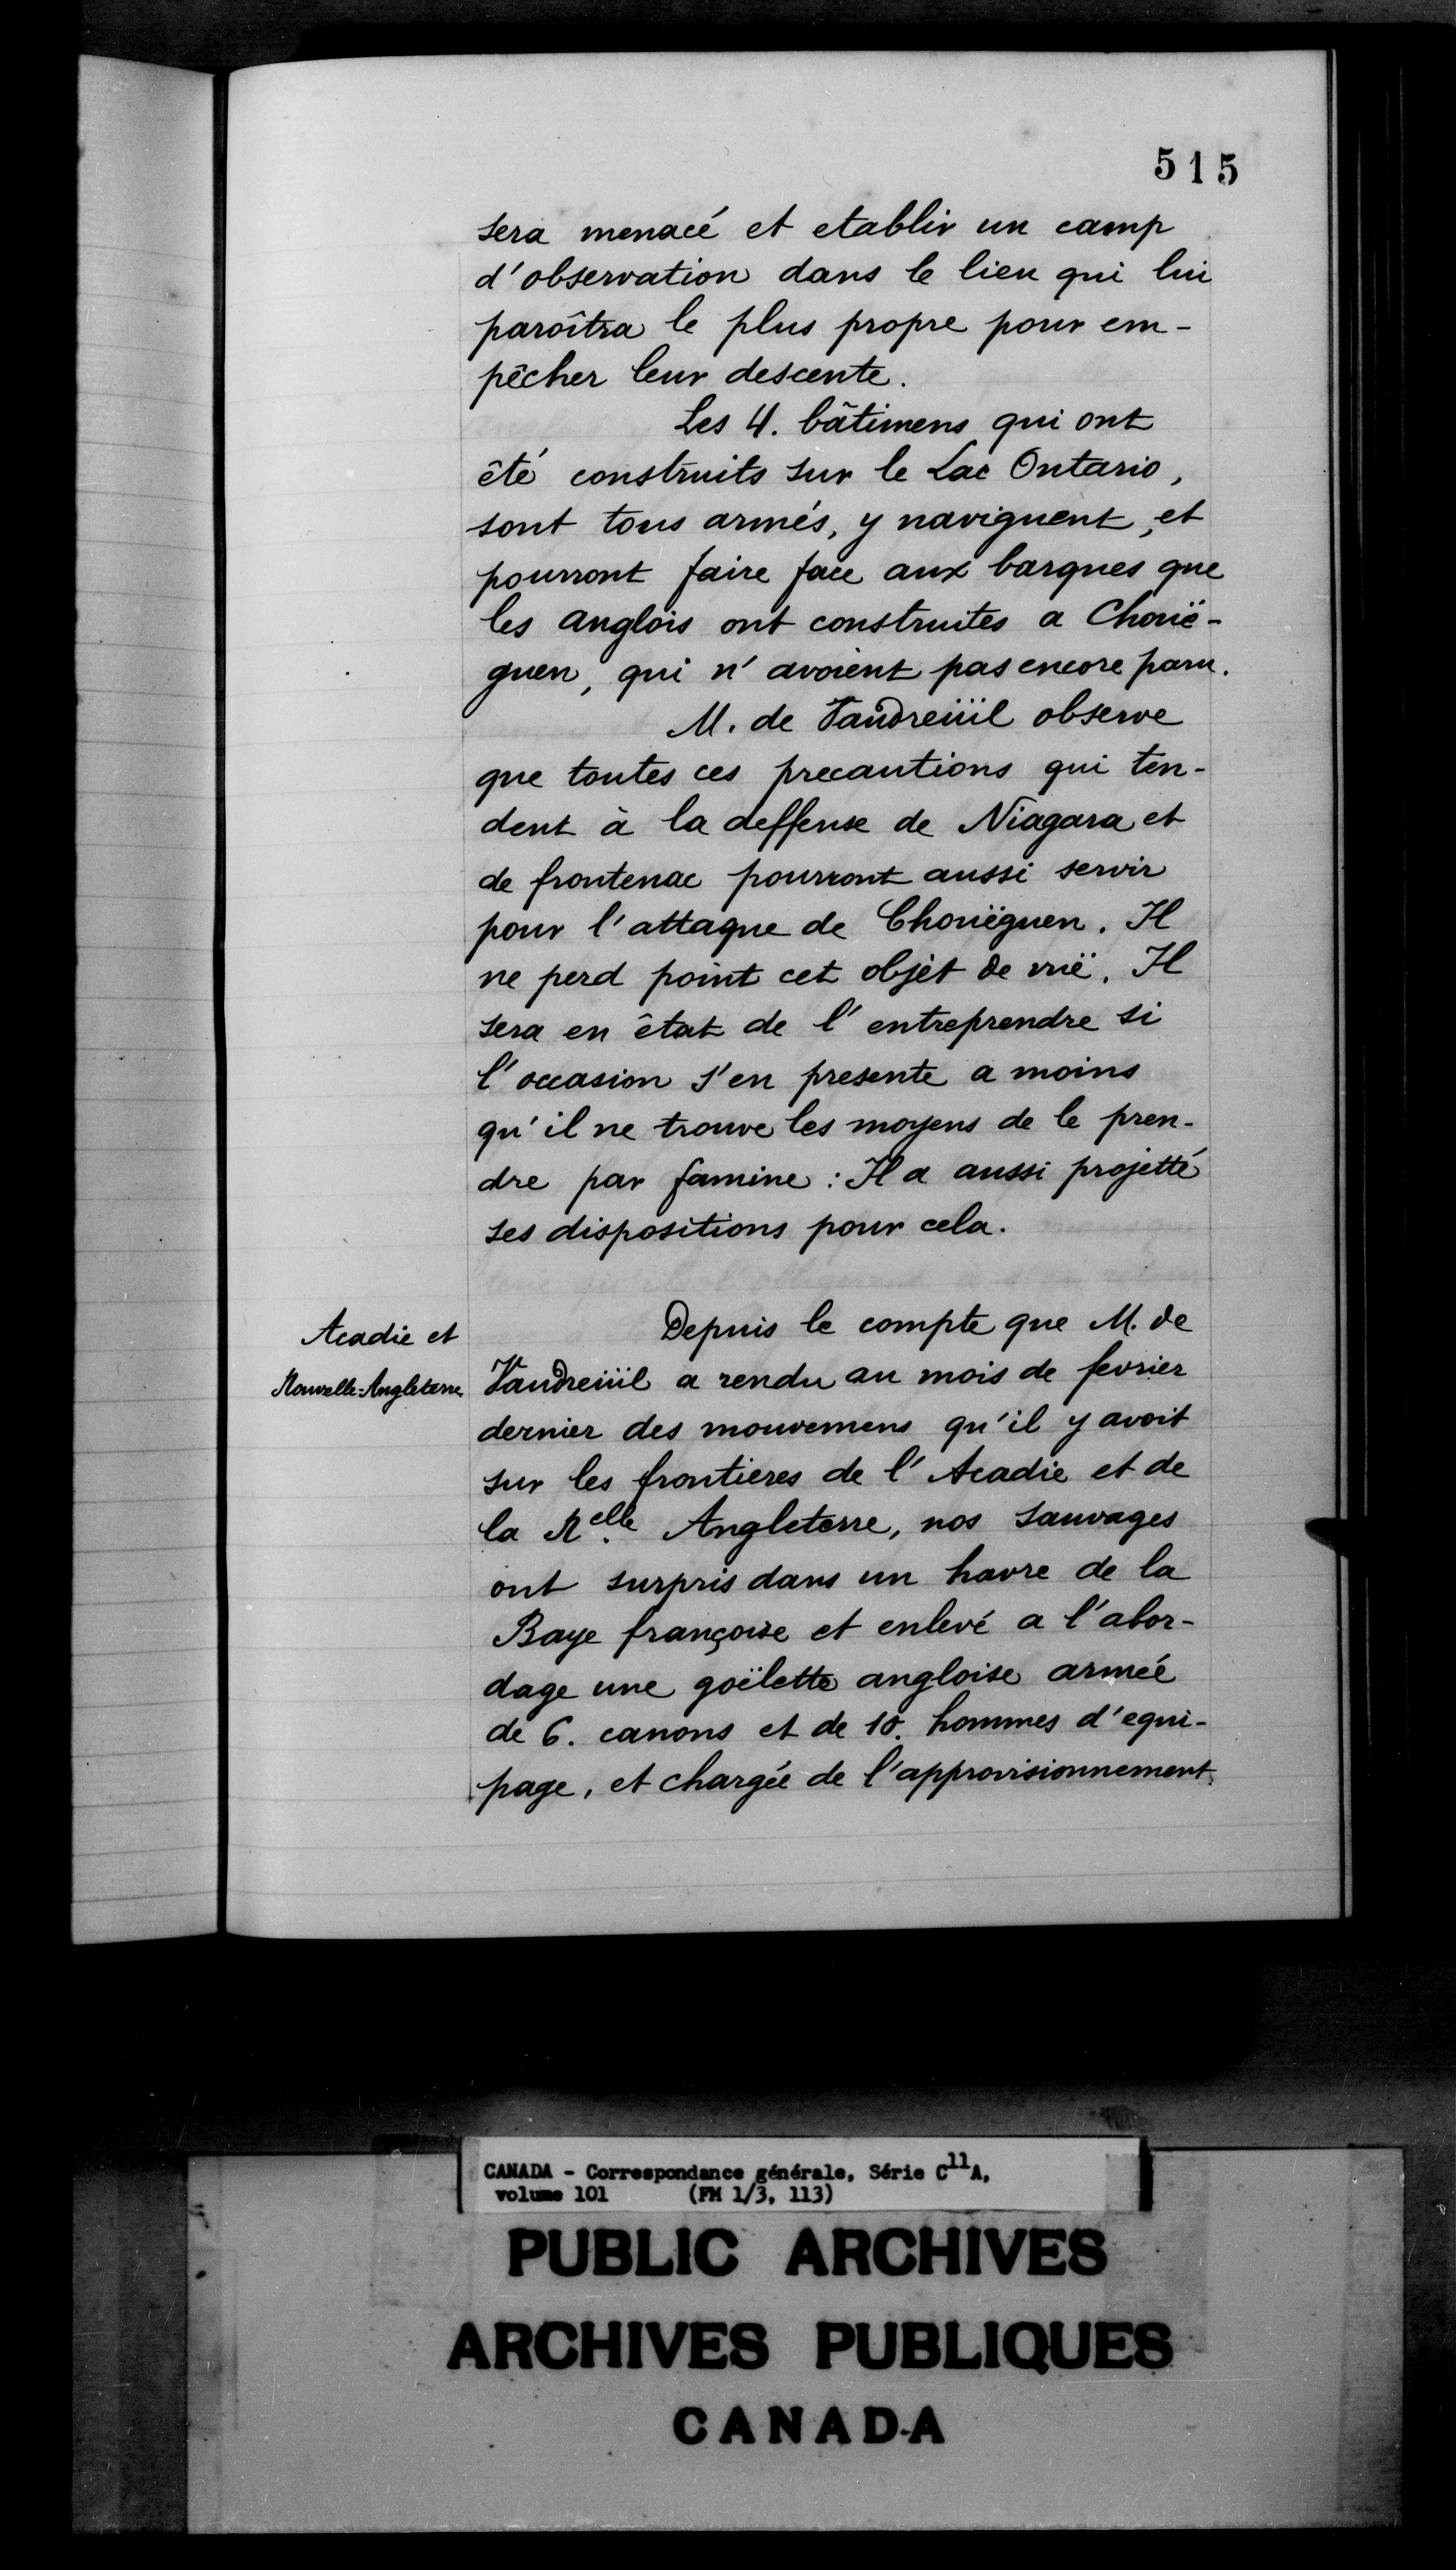 515
sera menacé et etablir un camp
d'observation dans le lieu qui lui
paroîtra le plus propre pour em-
pêcher leur descente.
Les 4. bâtimens qui ont
êté construits sur le Lac Ontario,
sont tous armés, y naviguent, et
pourront faire face aux barques que
les anglois ont construites a Chouë-
guen, qui n'avoient pas encore paru.
M. de Vaudreüil observe
que toutes ces precautions qui ten-
dent à la deffense de Niagara et
de frontenac pourront aussi servir
pour l'attaque de Chouëguen. Il
ne perd point cet objèt de vuë. Il
sera en êtat de l'entreprendre si
l'occasion s'en presente a moins
qu'il ne trouve les moyens de le pren-
dre par famine : Il a aussi projetté
ses dispositions pour cela.
Acadie et
Nouvelle-Angleterre
Depuis le compte que M. de
Vaudreüil a rendu au mois de fevrier
dernier des mouvemens qu'il y avoit
sur les frontieres de l'Acadie et de
la N.elle Angleterre, nos Sauvages
ont surpris dans un havre de la
Baye françoise et enlevé a l'abor-
dage une goëlette angloise armée
de 6. canons et de 10. hommes d'equi-
page, et chargée de l'approvisionnement
CANADA - Correspondance générale, Série C11A,
volume 101 (FM 1/3, 113)
PUBLIC ARCHIVES
ARCHIVES PUBLIQUES
CANADA